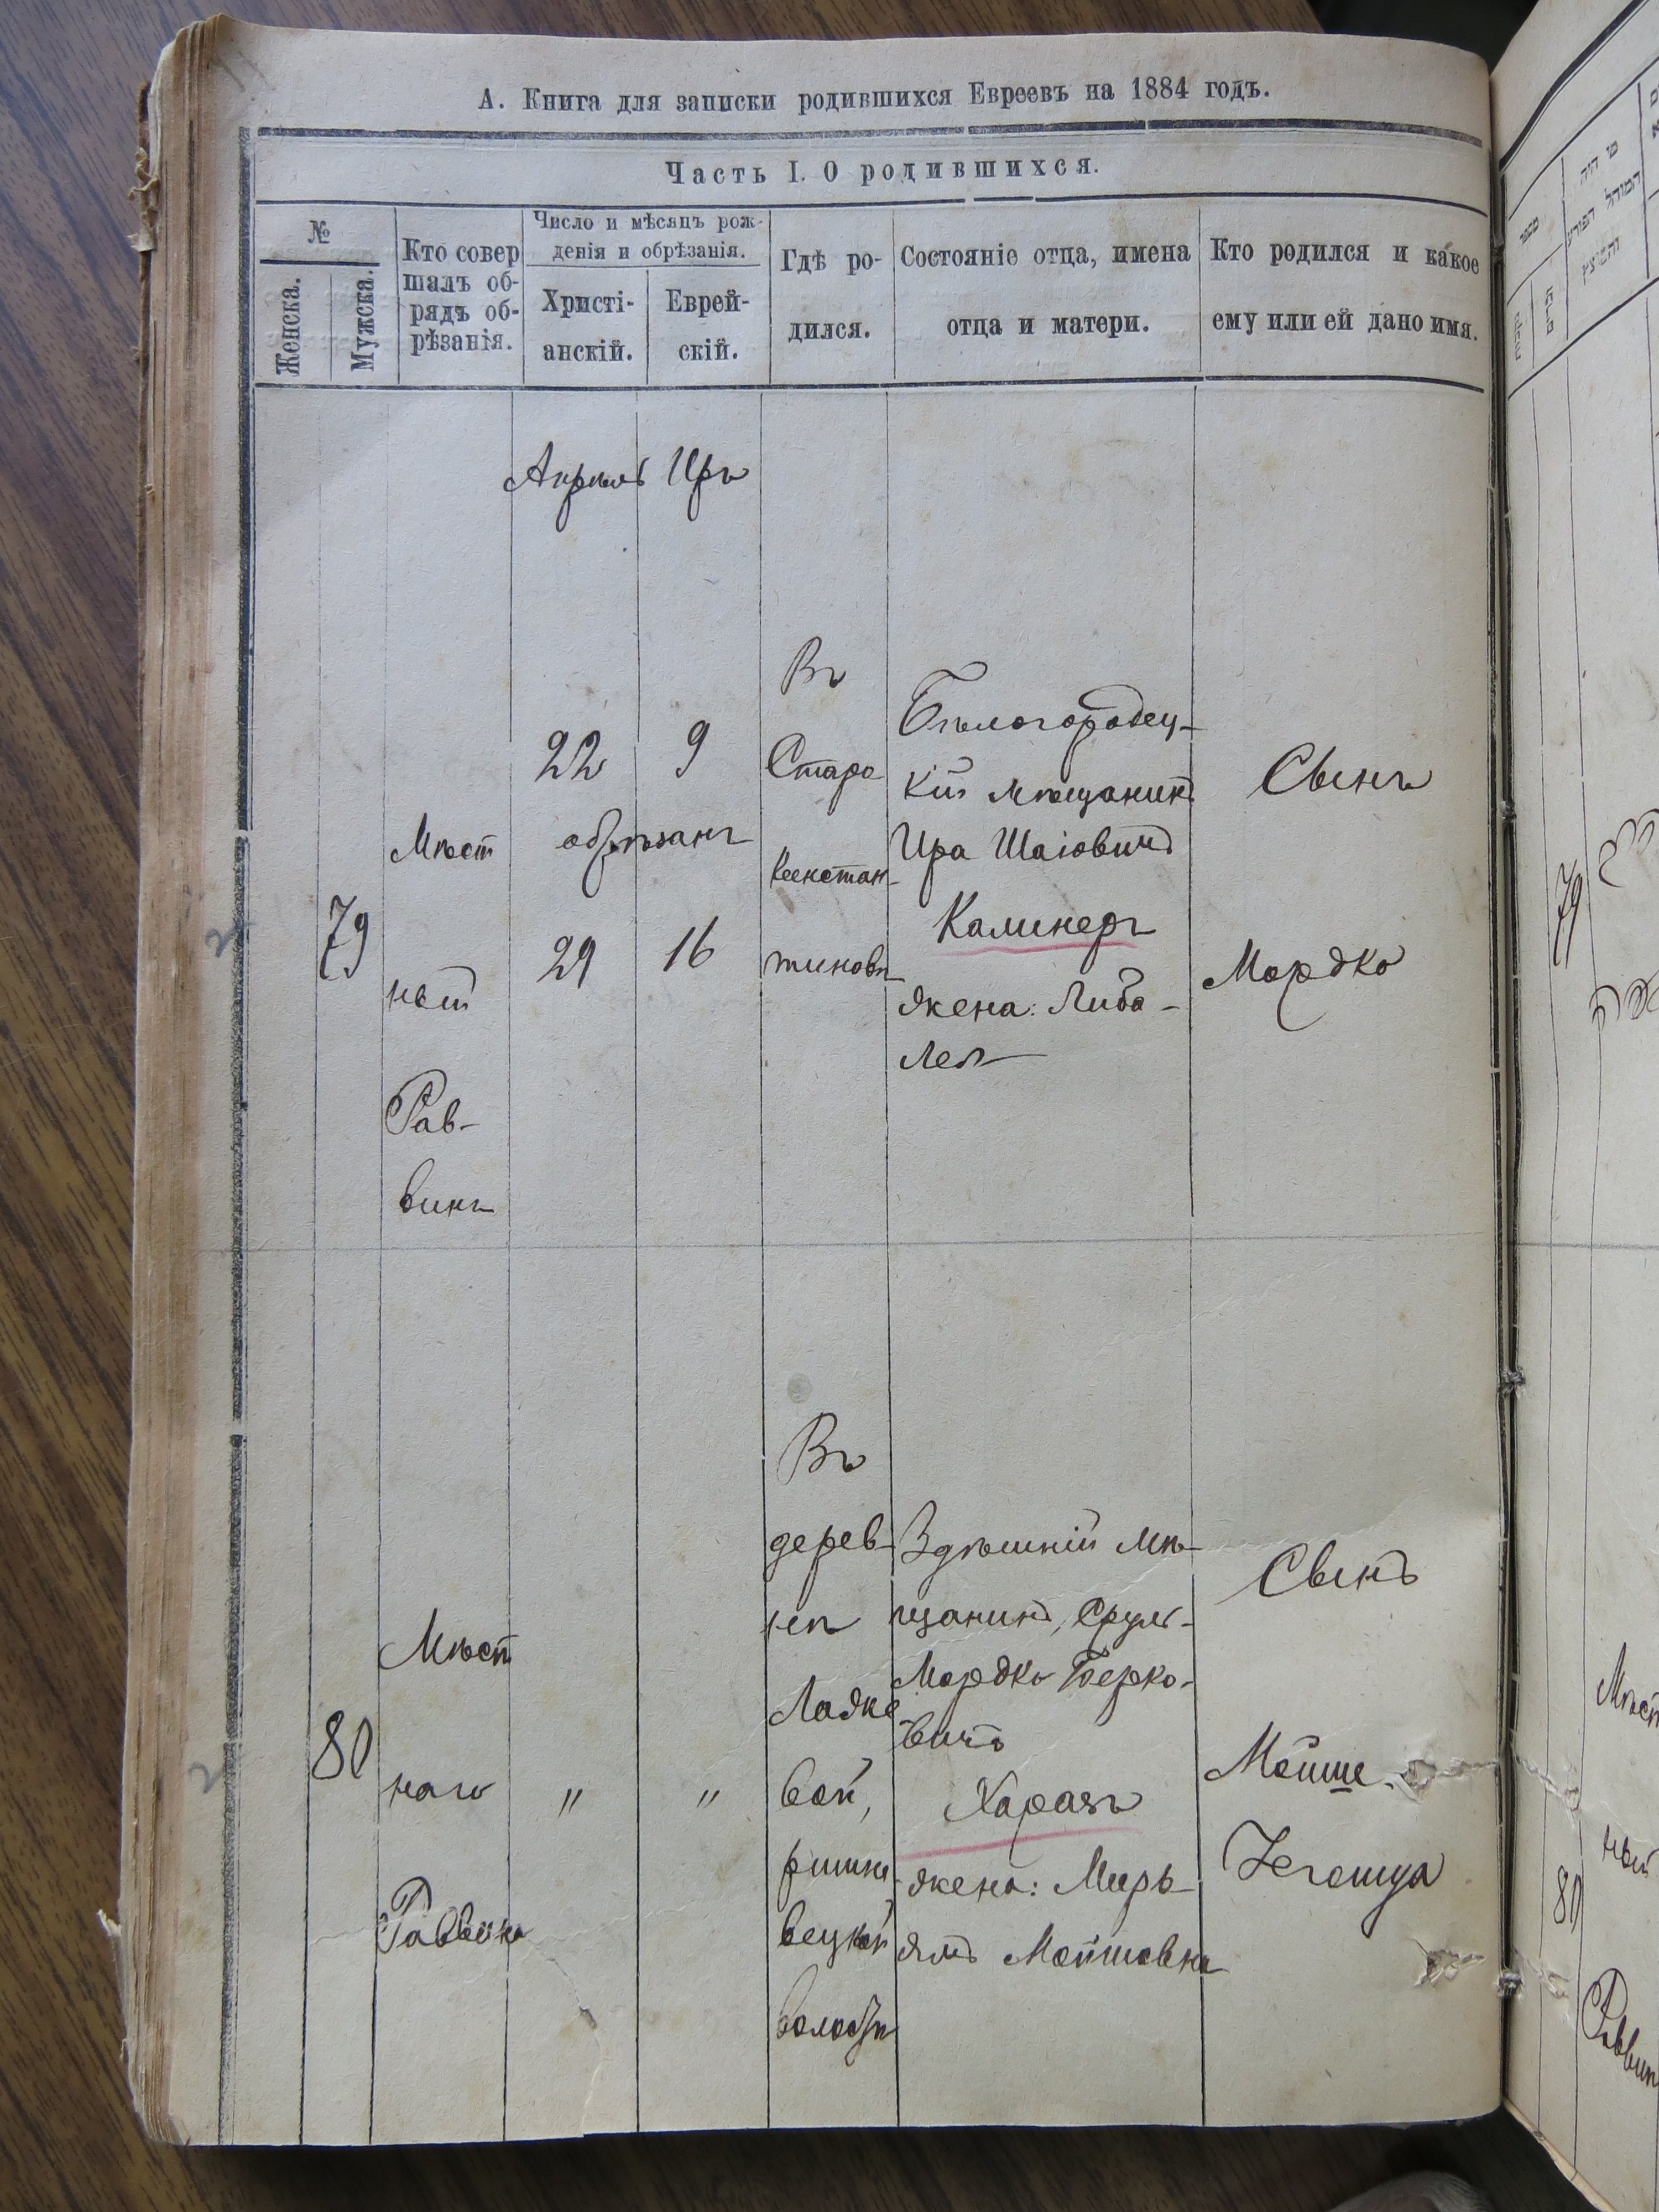 А. Книга для записки родившихся Евреевъ на 1884 годъ.
Часть I. О родившихся.
№
Женска.
Мужска.
Кто совер
шалъ об-
рядъ об-
рѣзанія.
Число и мѣсяцъ рож-
денія и обрѣзанія.
Христі-
анскій.
Еврей-
скій.
Гдѣ ро-
дился.
Состояніе отца, имена
отца и матери.
Кто родился и какое
ему или ей дано имя.
Апрѣль Иръ
79
Мѣст
ный
Рав-
винъ
22 9
обрѣзанъ
29 16
Въ
Старо
Константи-
тиновѣ
Бѣлогородец-
кій мѣщанинъ
Ира Шаіовичъ
Калинеръ
жена: Либа-
Лея
Сынъ
Мордко
80
Мѣст
наго
Раввина
" "
Въ
дерев-
нѣ
Лажке
вой,
волости
Здѣшній мѣ-
щанинъ, Сруль-
Мордко Берко-
вичъ
Харазъ
жена: Мирь-
ямъ Мойшовна
Сынъ
Мойше-
Іегошуа
79
80